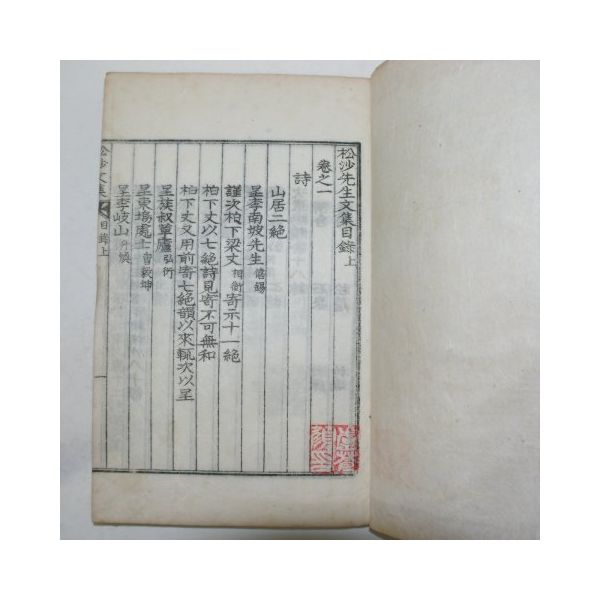 松沙先生文集目錄上
卷之一
詩
山居二絶
呈李南坡先生
謹次柏下梁丈相衡寄示十一絶
柏下丈以七絶詩見寄不可無和
柏下丈又用前寄七絶韻以來輒次以呈
呈族叔草廬弘衍
呈東塢處士曺毅坤
呈李岐山升煥
松沙文集
目錄上